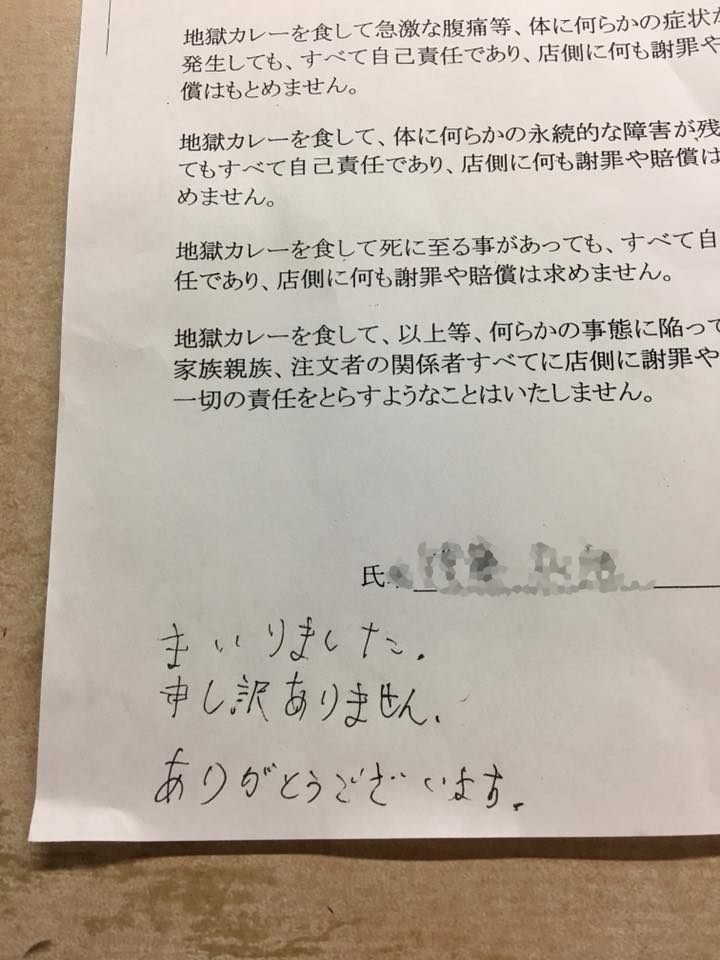 地獄カレーを食して急激な腹痛等、体に何らかの症状が
発生しても、すべて自己責任であり、店側に何も謝罪や
償はもとめません。
地獄カレーを食して、体に何らかの永続的な障害が残
てもすべて自己責任であり、店側に何も謝罪や賠償は
めません。
地獄カレーを食して死に至る事があっても、すべて自
任であり、店側に何も謝罪や賠償は求めません。
地獄カレーを食して、以上等、何らかの事態に陥って
家族親族、注文者の関係者すべてに店側に謝罪や
一切の責任をとらすようなことはいたしません。
氏
まいりました.
申し訳ありません.
ありがとうございます.